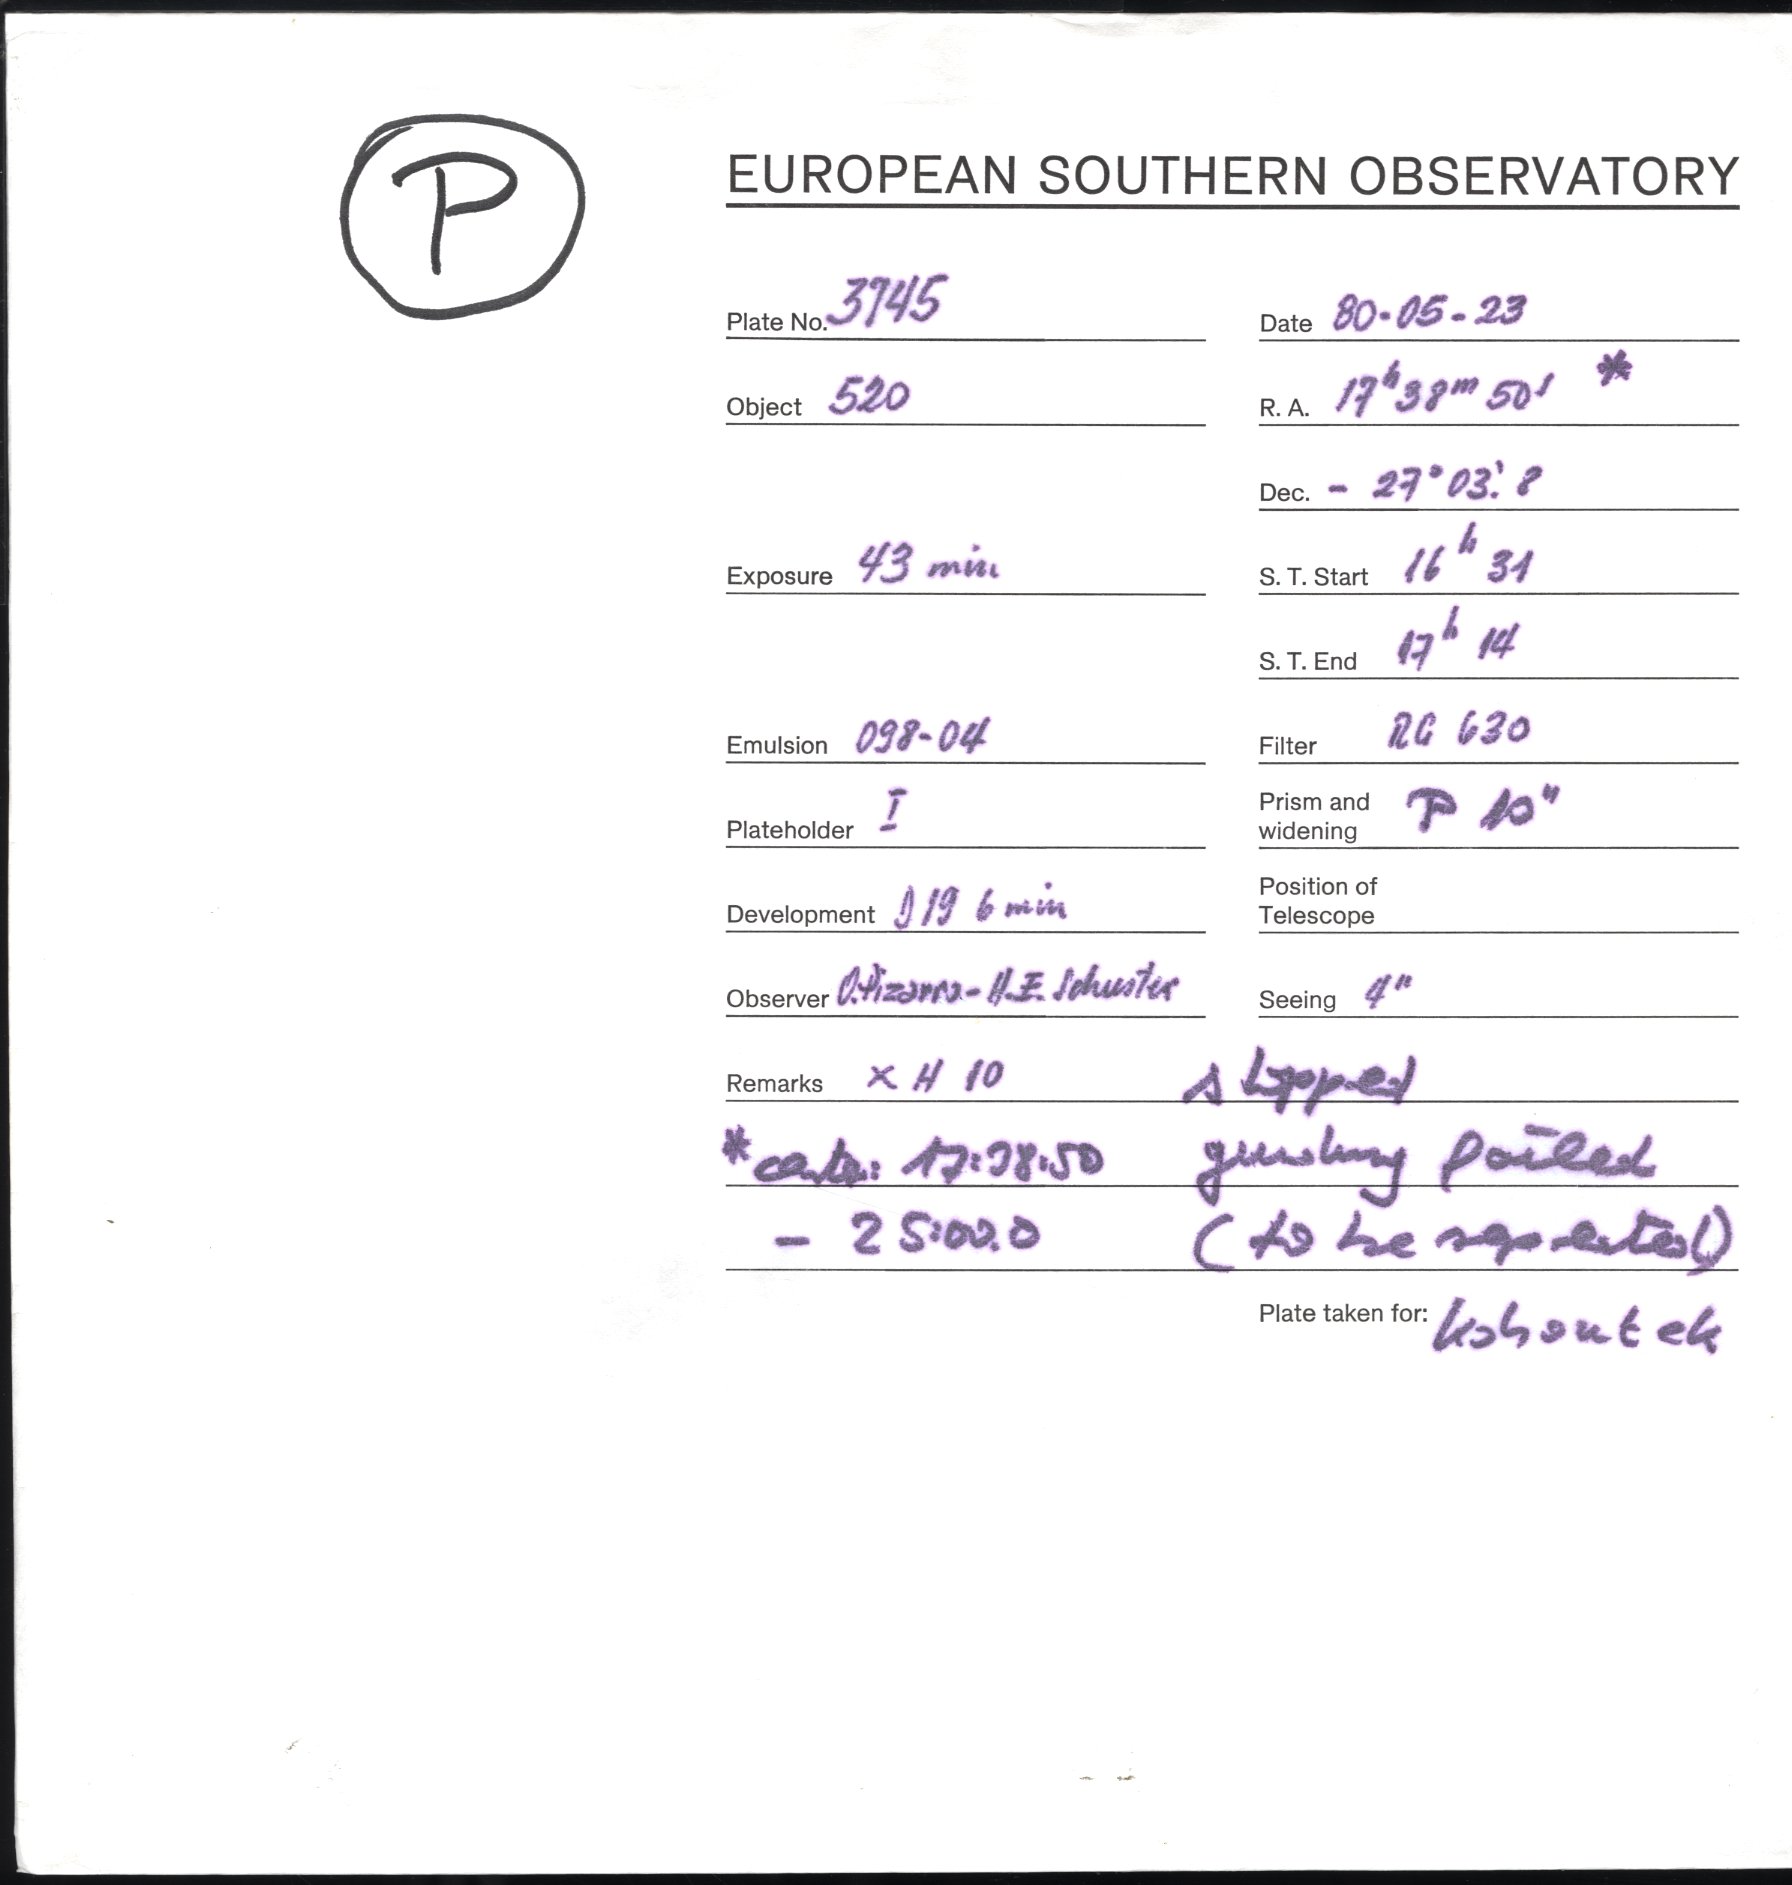 P
EUROPEAN SOUTHERN OBSERVATORY
Plate No. 3745
Date 80-05-23
Object 520
R. A. 17h 38m 50s *
Dec. - 27° 03'. 8
Exposure 43 min
S. T. Start 16h 31
S. T. End 17h 14
Emulsion 098-04
Filter RG 630
Plateholder I
Prism and widening P 10"
Development D19 6 min
Position of Telescope
Observer O. Pizarro - H.E. Schuster
Seeing 4"
Remarks × H 10 stopped
* center: 17:38:50 guiding failed
- 25:00.0 (to be repeated)
Plate taken for: Kohoutek